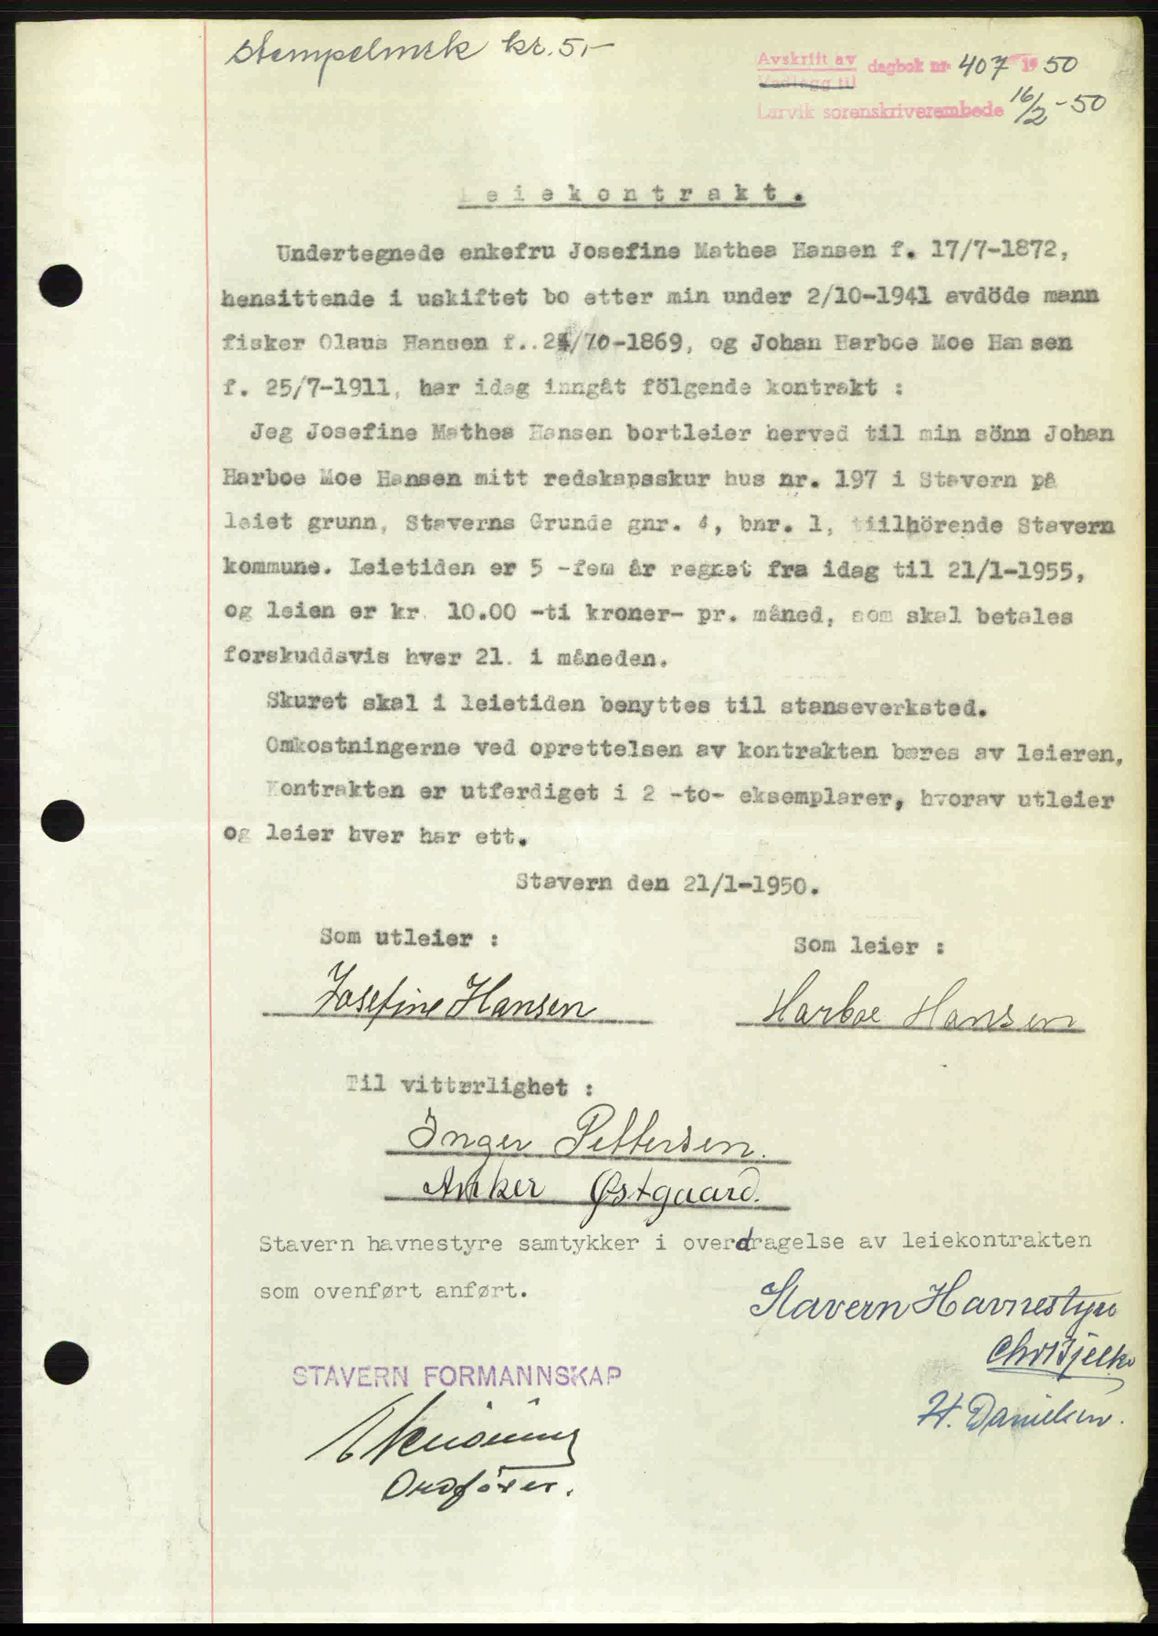 Stempelmrk kr. 5,-
Avskrift av
Vedlegg til
dagbok nr 407 19 50
Larvik sorenskriverembede 16/2-50
Leiekontrakt.
Undertegnede enkefru Josefine Mathea Hansen f. 17/7-1872,
hensittende i uskiftet bo etter min under 2/10-1941 avdöde mann
fisker Olaus Hansen f.. 24/10-1869, og Johan Harboe Moe Hansen
f. 25/7-1911, har idag inngåt fölgende kontrakt :
Jeg Josefine Mathea Hansen bortleier herved til min sönn Johan
Harboe Moe Hansen mitt redskapsskur hus nr. 197 i Stavern på
leiet grunn, Staverns Grunde gnr. 4, bnr. 1, tiilhörende Stavern
kommune. Leietiden er 5 -fem år regnet fra idag til 21/1-1955,
og leien er kr. 10.00 -ti kroner- pr. måned, som skal betales
forskuddsvis hver 21. i måneden.
Skuret skal i leietiden benyttes til stanseverksted.
Omkostningerne ved oprettelsen av kontrakten bæres av leieren,
Kontrakten er utferdiget i 2 -to- eksemplarer, hvorav utleier
og leier hver har ett.
Stavern den 21/1-1950.
Som utleier :
Som leier :
Josefine Hansen
Harboe Hansen
Til vitterlighet :
Inger Pettersen.
Anker Østgaard.
Stavern havnestyre samtykker i overdragelse av leiekontrakten
som ovenført anført.
Stavern Havnestyre
Chr Bjelke
H. Danielsen.
STAVERN FORMANNSKAP
Ordfører.